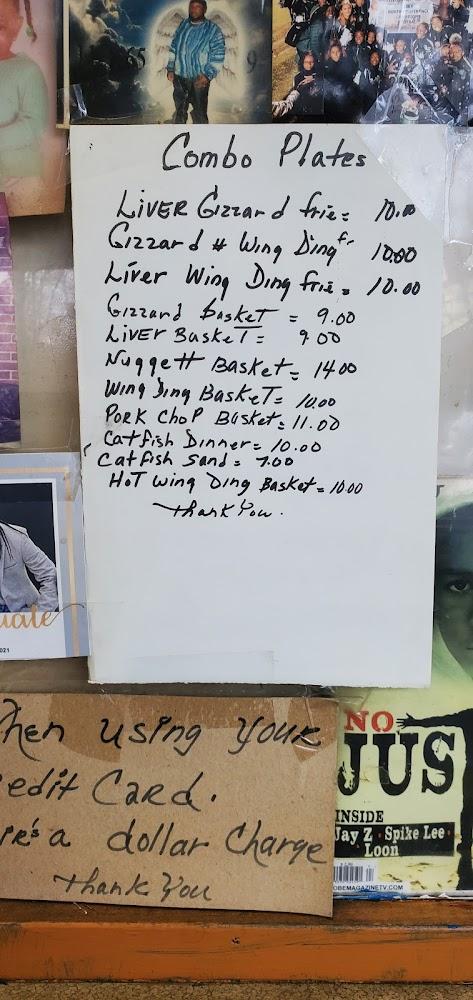 Combo Plates
LivER Gizzard frie = 10.00
Gizzard # Wing Ding fr 10.00
Liver Wing Ding frie = 10.00
Gizzard basket = 9.00
LivER BaskeT = 9 00
Nuggett Basket = 14 00
Wing Ding BaskeT = 10.00
Pork ChoP Basket = 11.00
Catfish Dinner = 10.00
Catfish sand = 7.00
HoT Wing Ding Basket = 10.00
Thank You.
uate
021
hen using your
edit Card.
a dollar Charge
Thank You
NO
JUS
INSIDE
Jay Z · Spike Lee ·
Loon
OBEMAGAZINETV.COM